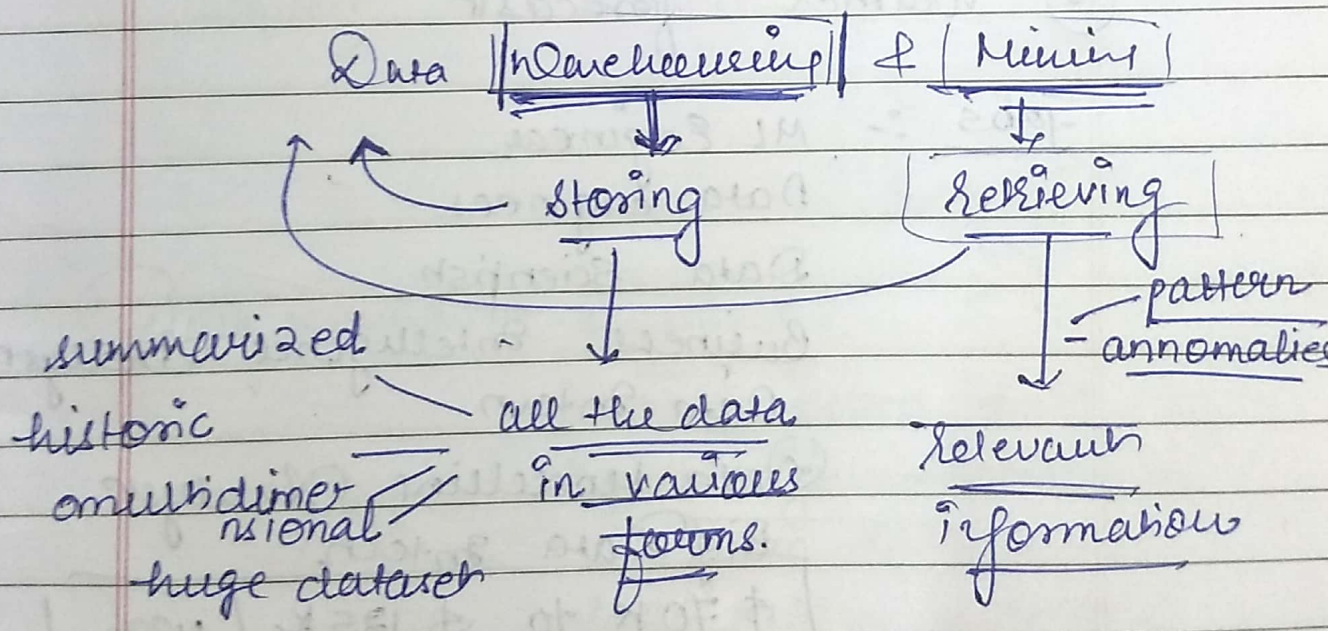 Data Warehousing & Mining
storing
retrieving
pattern
- annomalies
summarized
historic
multidimensional
huge dataset
all the data
in various
forms.
relevant
information